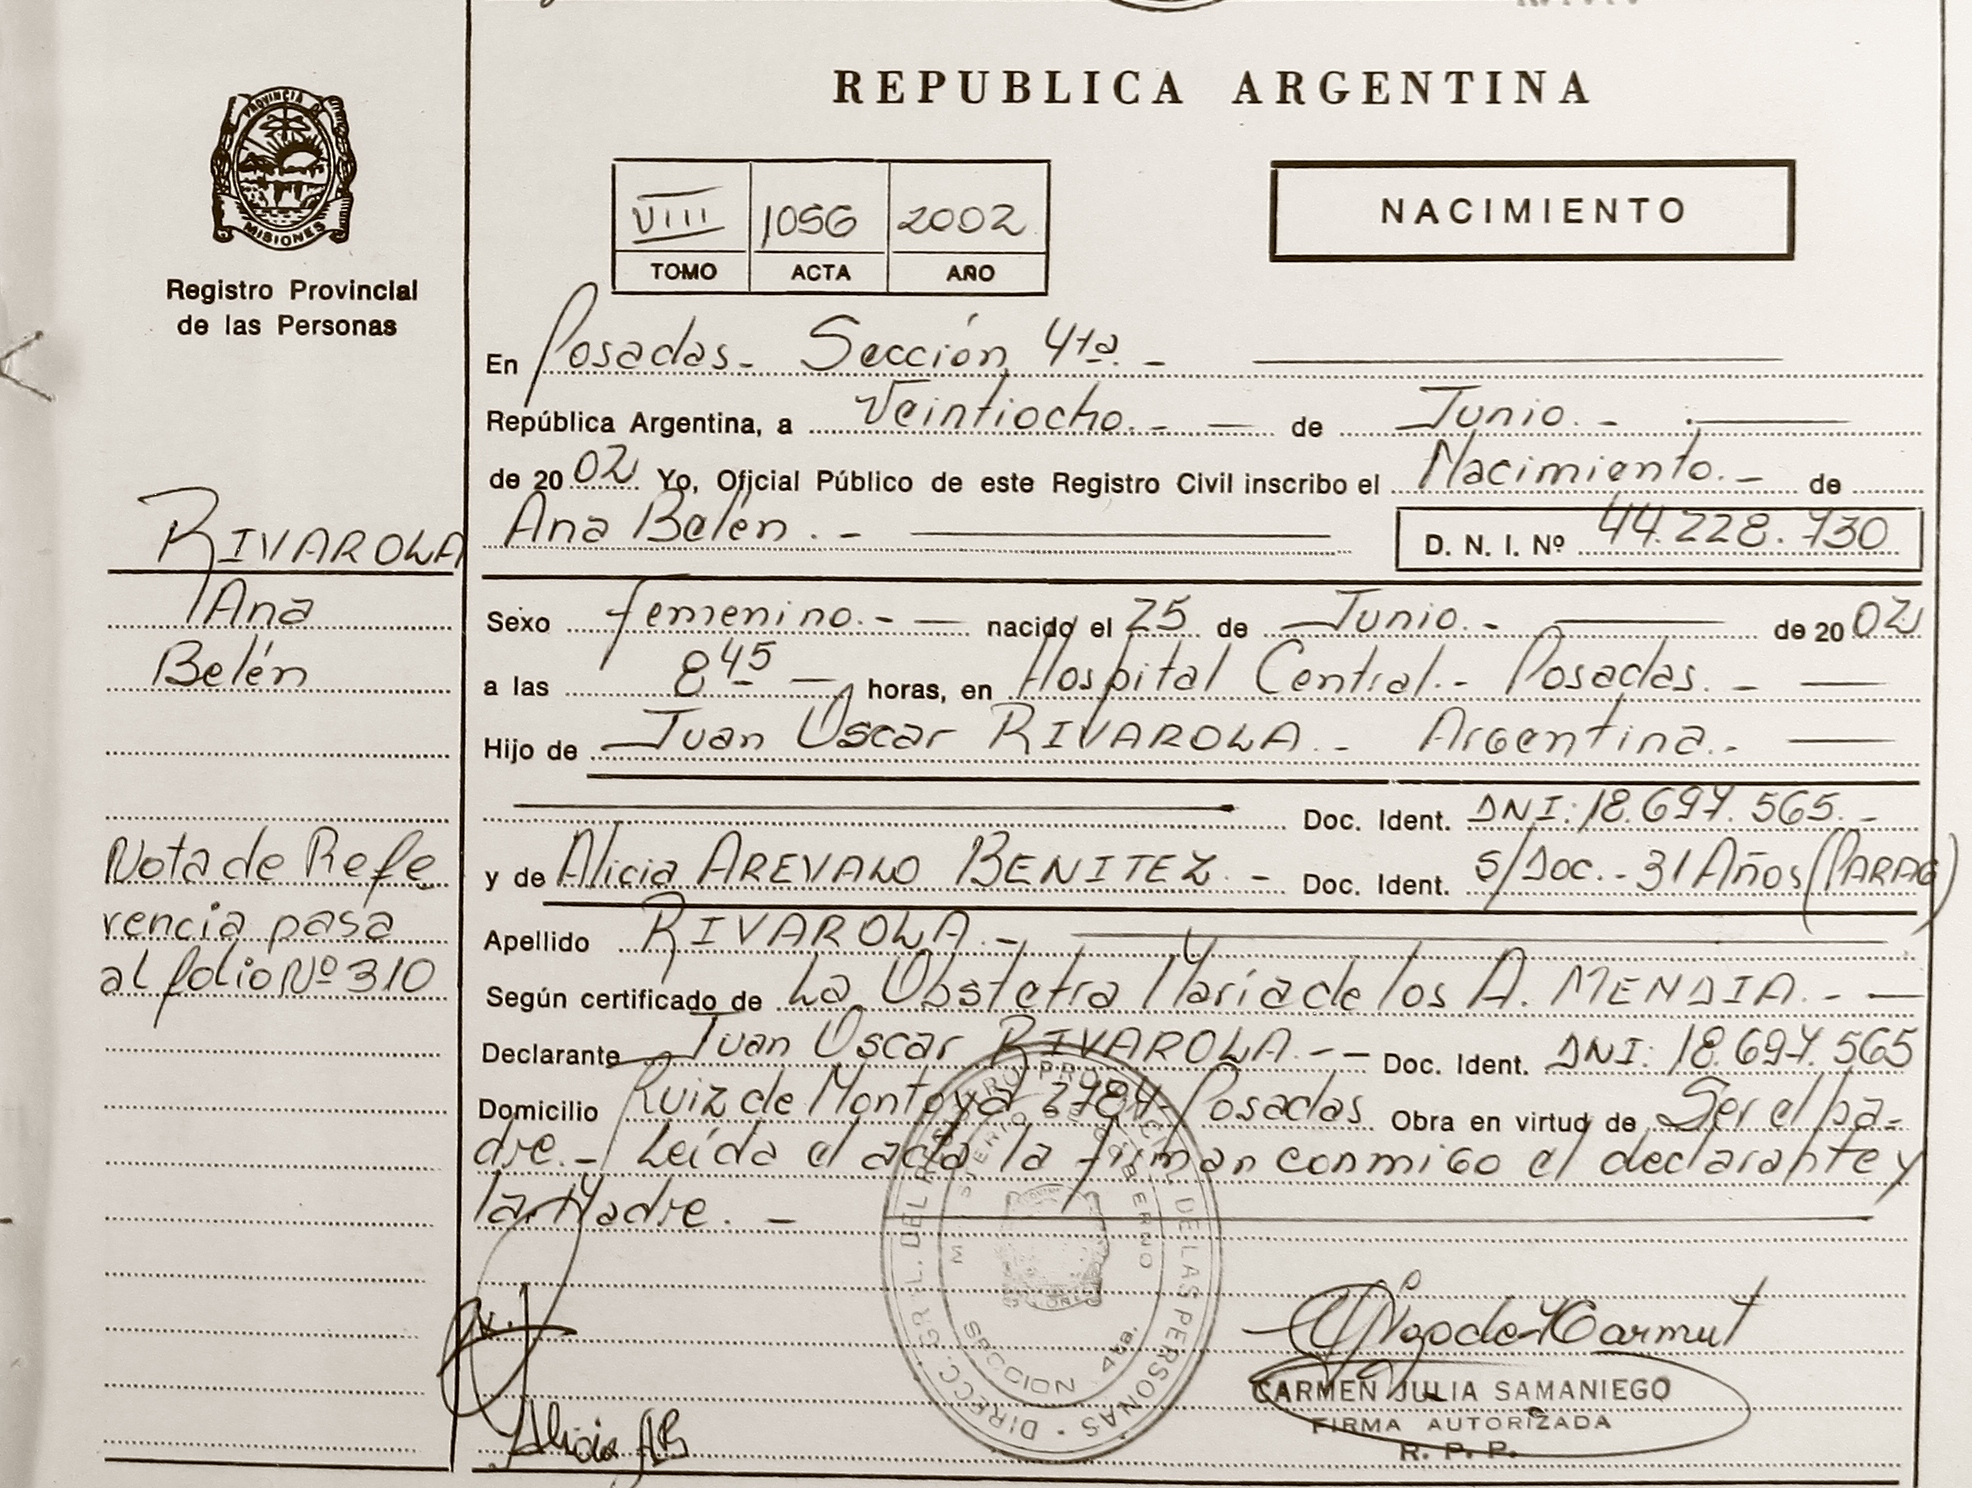 REPUBLICA ARGENTINA
PROVINCIA DE
MISIONES
Registro Provincial
de las Personas
VIII 1056 2002
TOMO ACTA AÑO
NACIMIENTO
En Posadas.- Sección 4ta.-
República Argentina, a Veintiocho.- de Junio.-
de 2002 Yo, Oficial Público de este Registro Civil inscribo el Nacimiento.- de
Ana Belén.- D. N. I. Nº 44.228.730
RIVAROLA
Ana
Belén
Sexo femenino.- nacido el 25 de Junio.- de 2002
a las 8 45 horas, en Hospital Central.- Posadas.-
Hijo de Juan Oscar RIVAROLA.- Argentina.-
Doc. Ident. DNI: 18.697.565.-
y de Alicia AREVALO BENITEZ.- Doc. Ident. S/Doc.- 31 Años (PARAG)
Apellido RIVAROLA.-
Según certificado de La Obstetra María de los A. MENDIA.-
Declarante Juan Oscar RIVAROLA.-- Doc. Ident. DNI: 18.697.565
Domicilio Ruiz de Montoya 2784- Posadas Obra en virtud de Ser el pa-
dre.- Leída el acta la firman conmigo el declarante y
la Madre.-
Nota de Refe
rencia pasa
al folio Nº 310
DIRECC. GRL. DEL REGISTRO PROVINCIAL DE LAS PERSONAS
MINISTERIO DE GOBIERNO
SECCION 4ta.
Alicia AB
CARMEN JULIA SAMANIEGO
FIRMA AUTORIZADA
R. P. P.